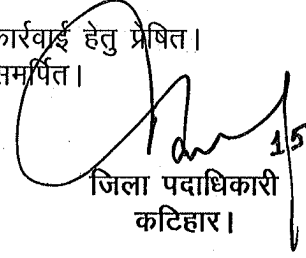 कार्रवाई हेतु प्रेषित।
समर्पित।
15
जिला पदाधिकारी
कटिहार।